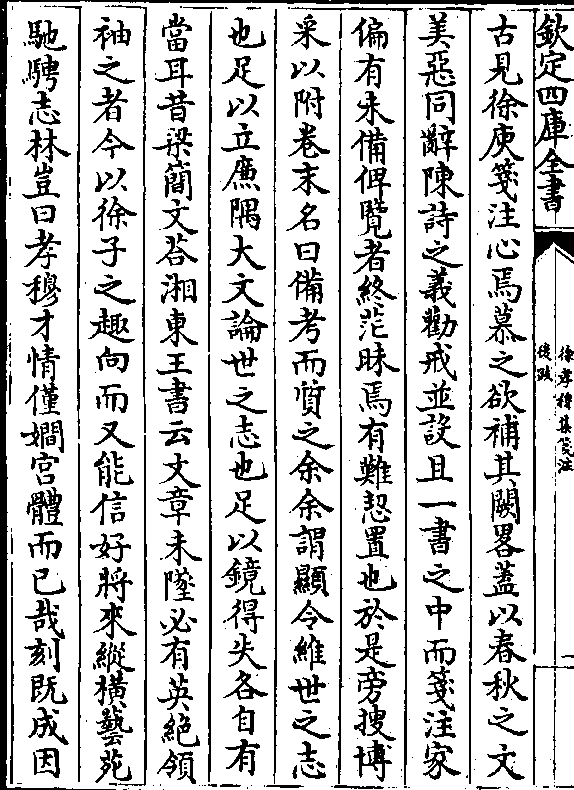 欽定四庫全書
徐孝穆集箋注
後跋
一
古見徐庾箋注心焉慕之欲補其闕畧蓋以春秋之文
美惡同辭陳詩之義勸戒並設且一書之中而箋注家
偏有未備俾覽者終茫昧焉有難恝置也於是旁搜博
采以附卷末名曰備考而質之余余謂顯令維世之志
也足以立廉隅大文論世之志也足以鏡得失各自有
當耳昔梁簡文荅湘東王書云文章未墜必有英絶領
袖之者今以徐子之趣向而又能信好將來縱横藝苑
馳騁志林豈曰孝穆才情僅嫺宫體而已哉刻既成因